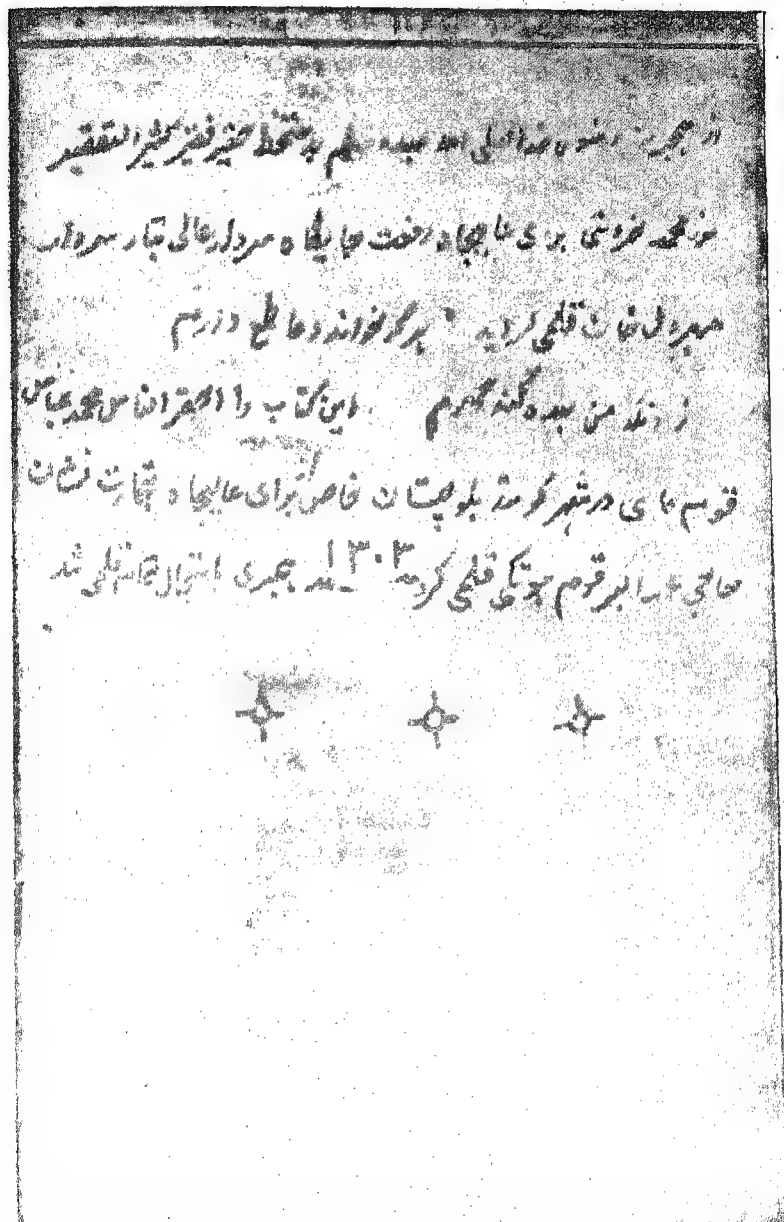 از هجرت رسول خدا صلی الله علیه وسلم بدستخط حقیر فقیر کثیر التقصیر
نور محمد نوروزی برای عالیجاه رفعت جایگاه سردار عالی تبار سردار
مهردل خان قلمی گردید هر که خواند دعا طمع دارم
زانکه من بنده گنه گارم این کتاب را احقر الناس محمد عباس
قوم در شهر بلوچستان خاص برای عالیجاه نشان
حاجی قوم قلمی کرد سنه ۱۳۰۳ هجری قلمی شد